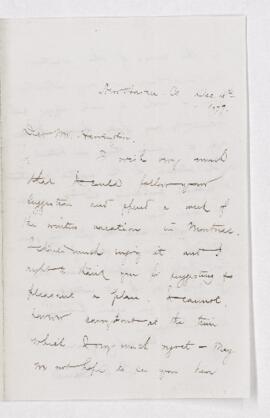 New Haven Ct Dec 4th
1879.
Dear Mr. Harrington,
I wish very much
that I could follow your
suggestion and spend a week of
the winter vacation in Montreal.
I should much enjoy it and I
ought to thank you for suggesting so
pleasant a plan. I cannot,
however at the time
which I very much regret — May
we not hope to see you here